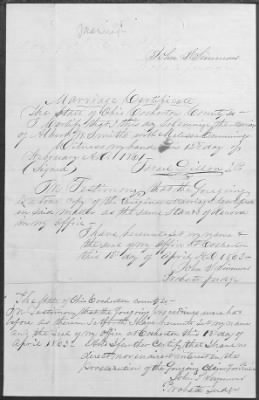 Marriage
John S Simmons
Marriage Certificate
The State of Ohio Coshocton County ss
I Certify that I this day Solemnize the
of Albert W Smith with
Witness my hand this 12th day of
February A.D. 1861
(Signed) Israel Dillon
In Testimony that the foregoing
is a true copy of the Original marriage
in said matter as the same Stands of Record
in my office
I have hereunto set my name &
the seal of my office at Coshocton
this 18th day of April A.D. 1863
John S Simmons
Probate Judge
The State of Ohio Coshocton County ss
In Testimony that the foregoing
before as therein Setforth I have hereunto set my name
and the seal of my office at Coshocton this 18th day of
April 1863 I also further Certify that I have no
direct nor indirect interest in the
prosecution of the foregoing Claim for
John S Simmons
Probate Judge